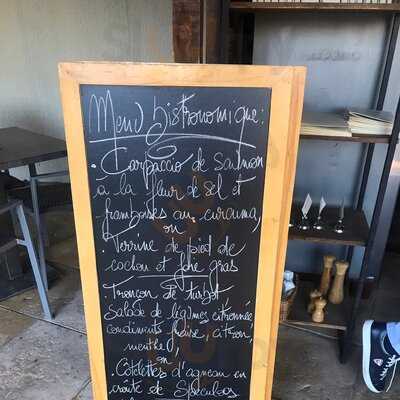 Menu bistronomique :
. Carpaccio de saumon
à la fleur de sel et
framboises au curcuma,
ou
. Verrine de pied de
cochon et foie gras
. Tronçon de turbot
Salade de légumes citronnée
condiments fraise, citron,
menthe,
ou
. Côtelettes d'agneau en
croûte de Spéculoos